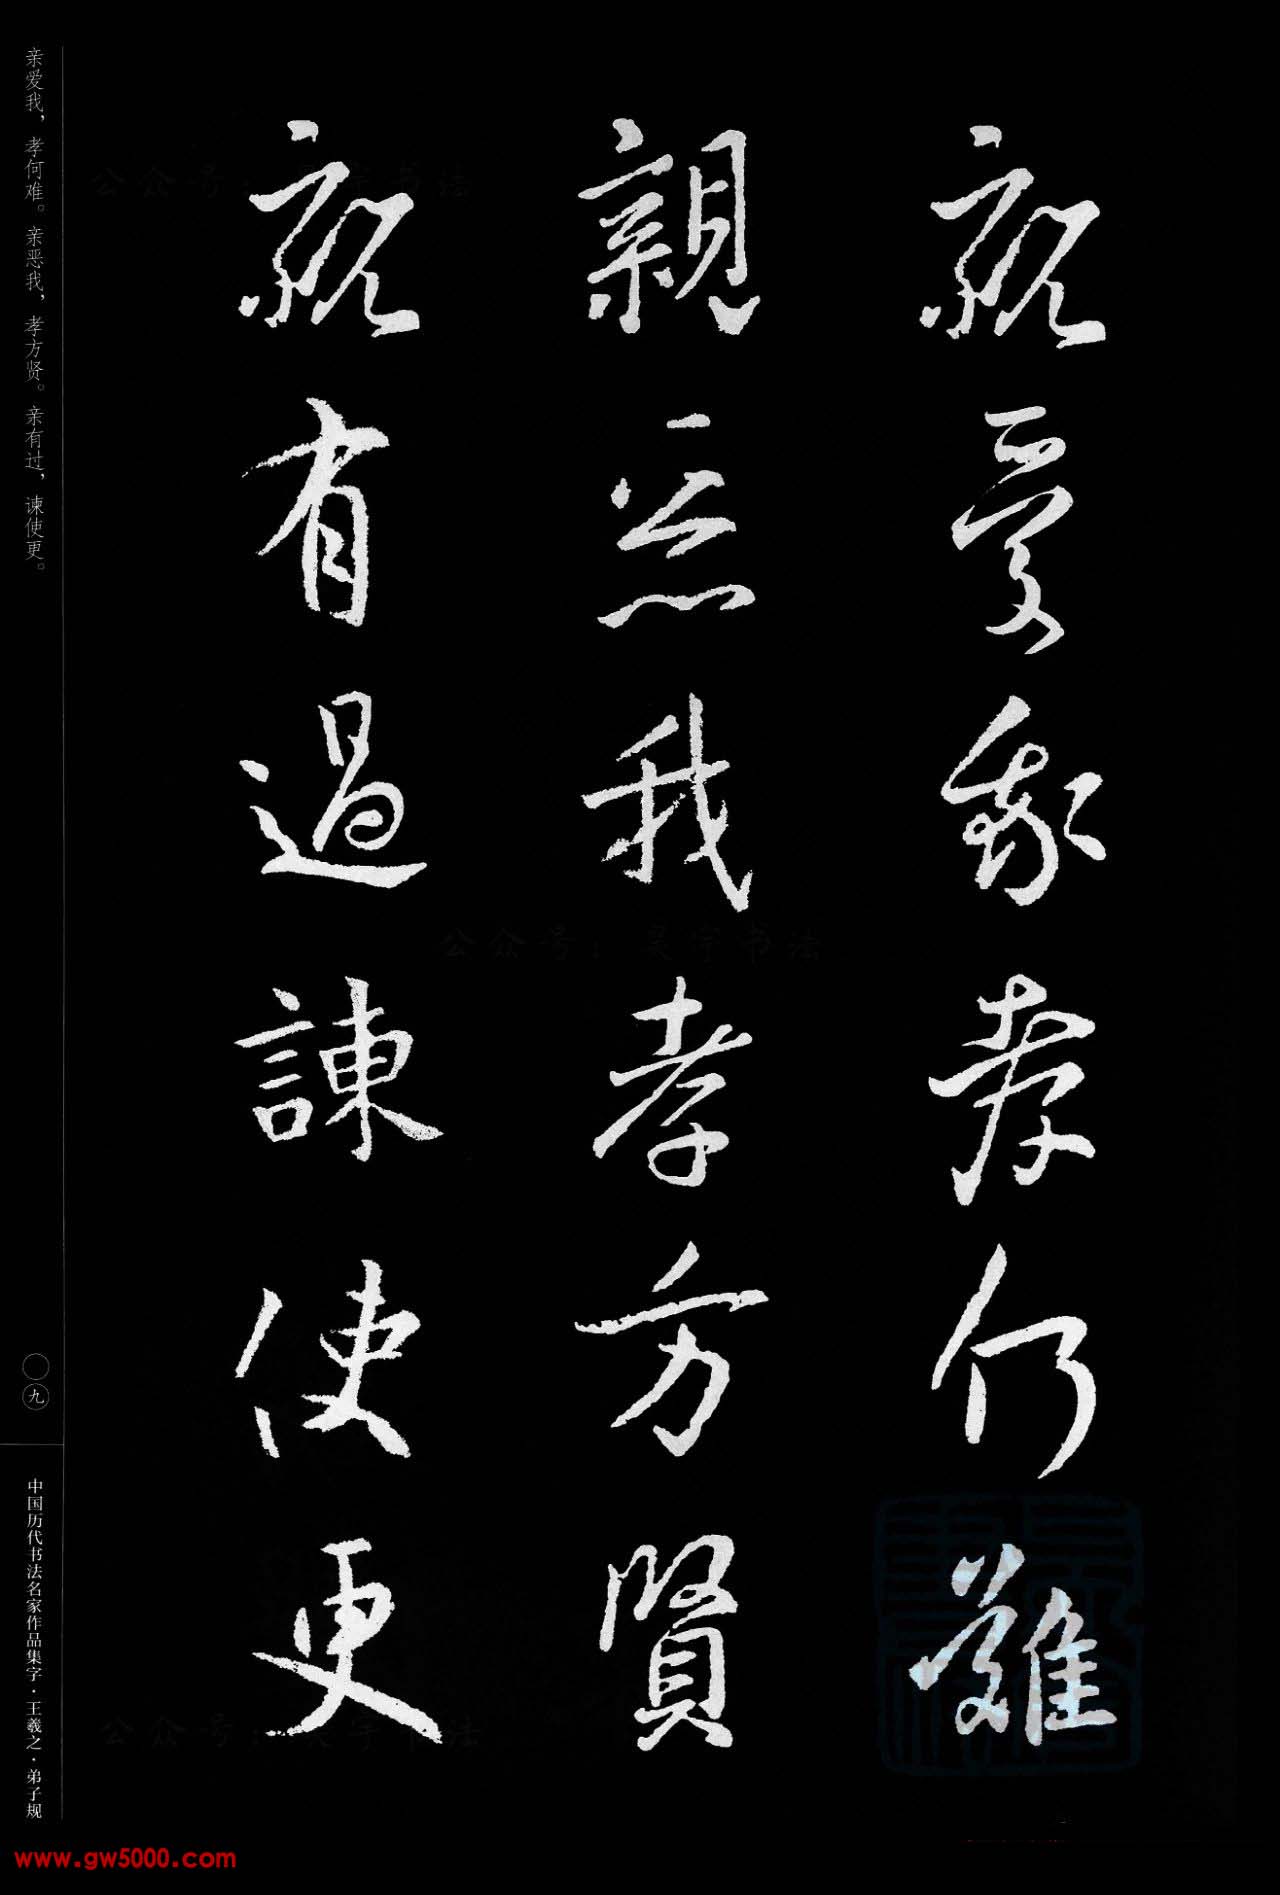 親愛我孝何難
親惡我孝方賢
親有過諫使更
亲爱我，孝何难。亲恶我，孝方贤。亲有过，谏使更。
〇九
中国历代书法名家作品集字·王羲之·弟子规
公众号：吴宇书法
www.gw5000.com